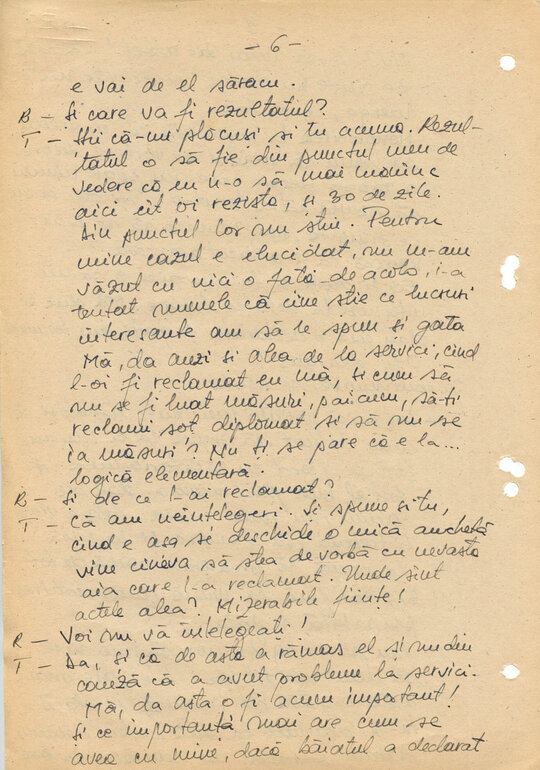 - 6 -
e vai de el săracu.
B - Și care va fi rezultatul?
T - Știi că-mi placuși si tu acuma. Rezul-
tatul o să fie din punctul meu de
vedere că eu n-o să mai mănînc
aici cît oi rezista, și 30 de zile.
Din punctul lor nu știu. Pentru
mine cazul e elucidat, nu m-am
văzut cu nici o față de acolo, i-a
tentat numele că cine știe ce lucruri
interesante am să le spun și gata
Mă, da auzi și alea de la servici, cînd
l-oi fi reclamat eu mă, și cum să
nu se fi luat măsuri, păi cum, să-ți
reclami soț diplomat și să nu se
ia măsuri? Nu ți se pare că e la...
logică elementară.
B - Și de ce l-ai reclamat?
T - Că am neînțelegeri. Și spune și tu,
cînd e așa se deschide o mică anchetă
vine cineva să stea de vorbă cu nevasta
aia care l-a reclamat. Unde sînt
actele alea? Mizerabile ființe!
R - Voi nu vă înțelegeați!
T - Da, și că de asta a rămas el și nu din
cauză că a avut probleme la servici.
Mă, da asta o fi acum important!
Și ce importanță mai are cum se
avea cu mine, dacă băiatul a declarat